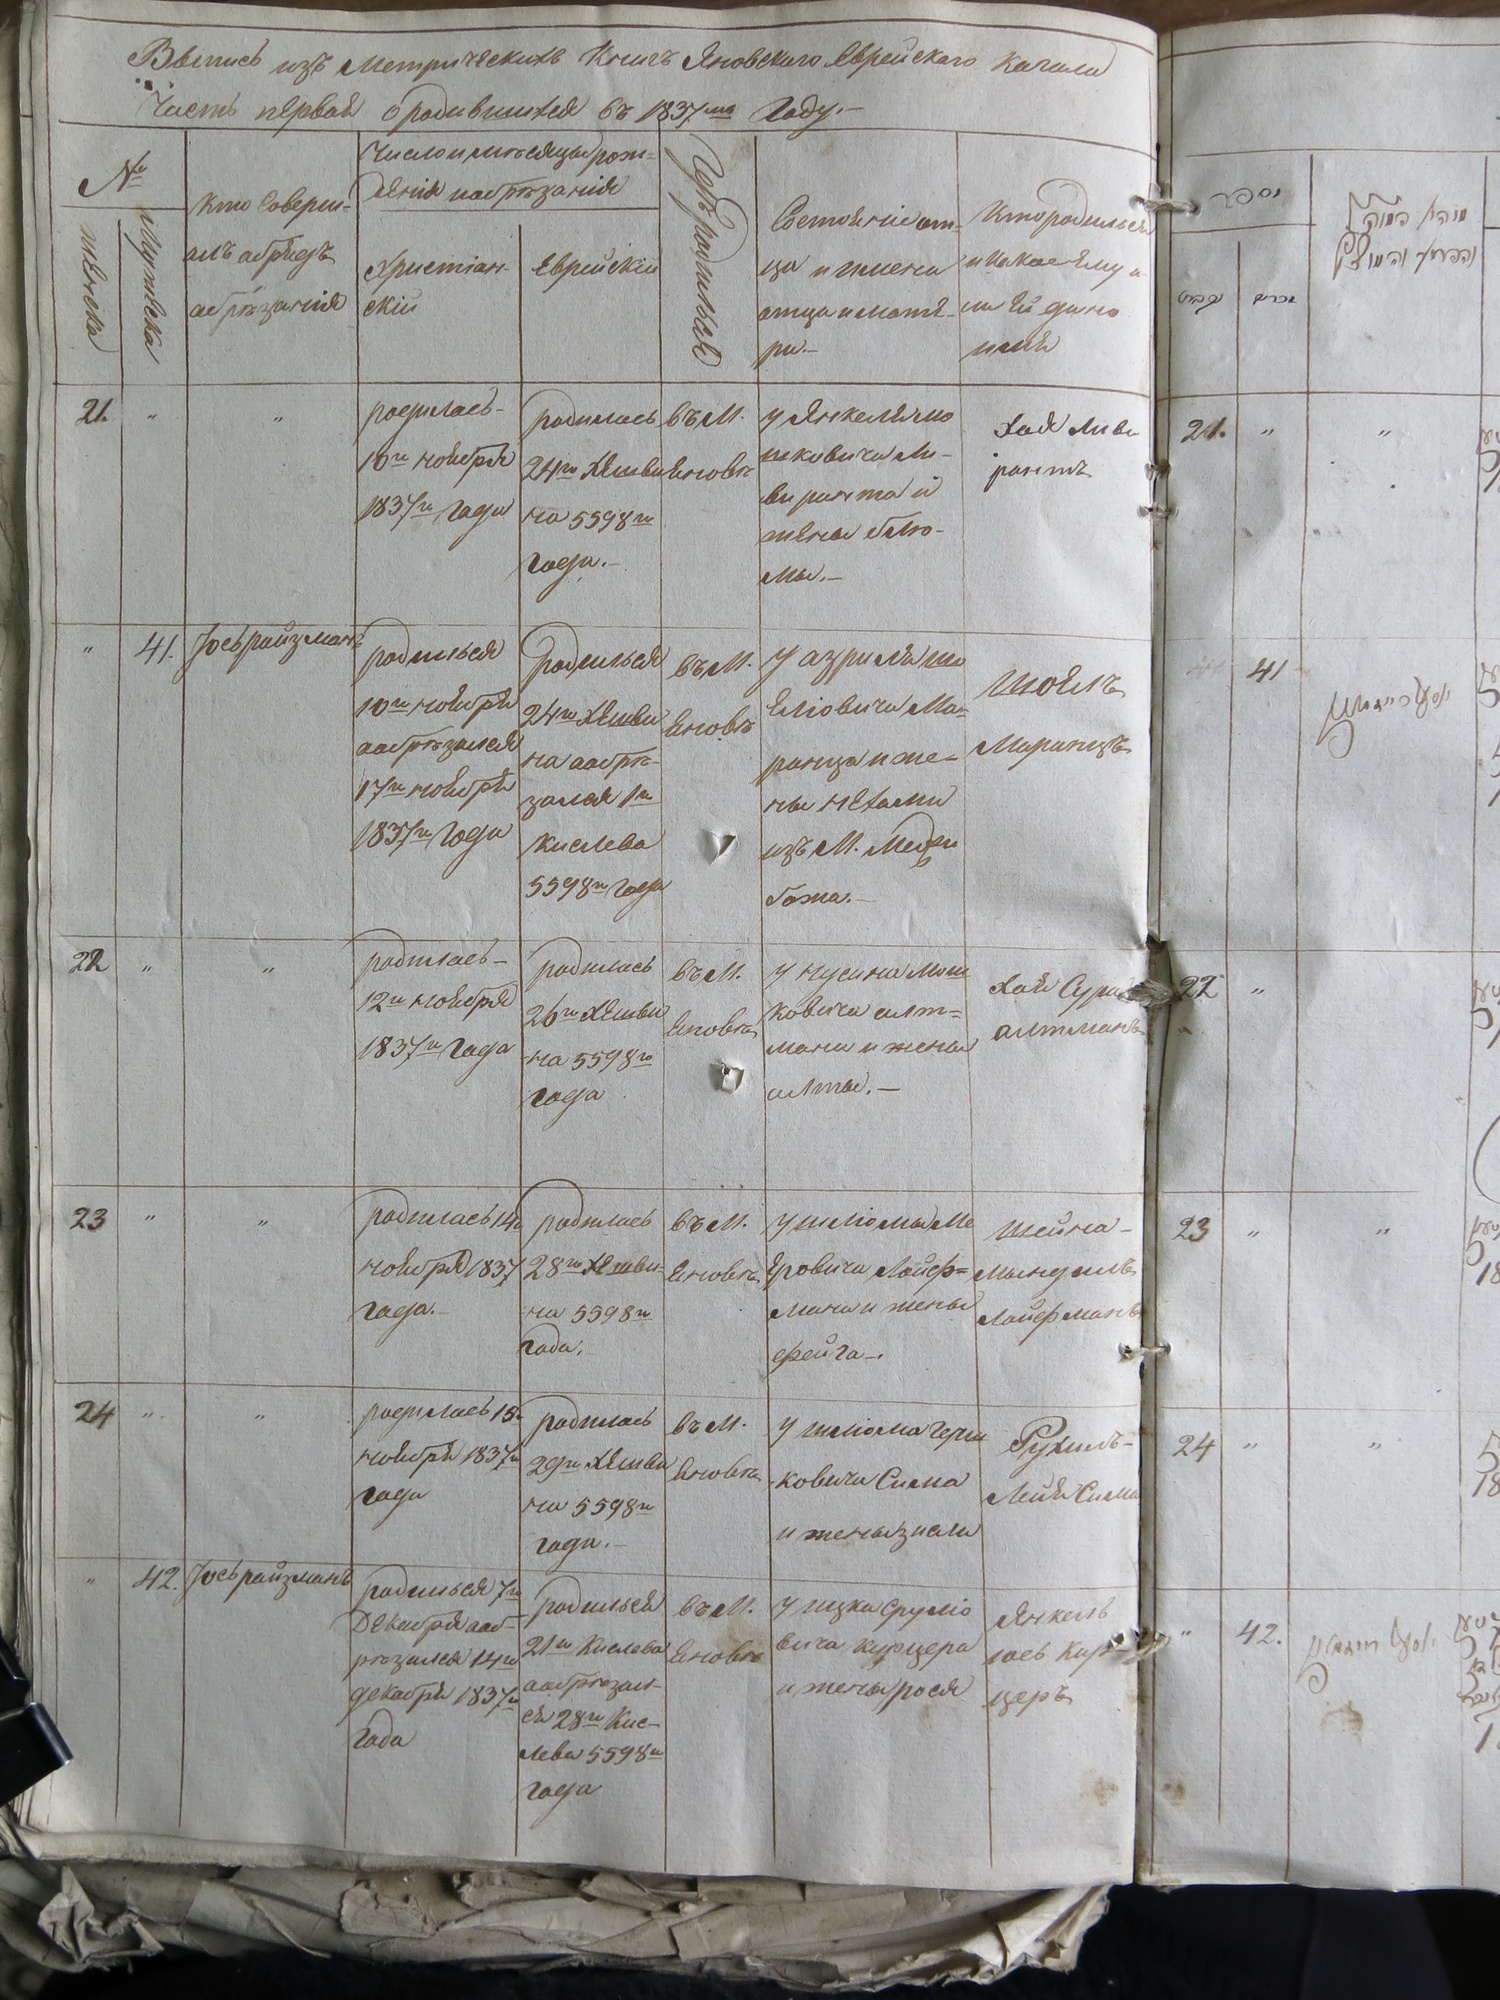 Выпись изъ Метрическихъ Книгъ Яновского Еврейского Кагала
Часть первая о родившихся въ 1837мъ Году.-
№
женска
мужеска
Кто соверш-
алъ абрядъ
абрезания
Число и месяцъ рож-
дения иабрезания
Христиан-
ский
Еврейский
Где родилься
Состояние от-
ца и имена
отца и мате-
ри.-
Кто родильса
и какое ему и-
ли Ей дано
имя
21. " "
родилась-
10го ноября
1837го Года
родилась
24го Хешва
на 5598го
Года.-
въ М.
Еновке
у Янкеля мо
шковича Ли-
виранта и
жены Блю-
мы.-
Хая Ливи
рантъ
" 41. Йось райзманъ
родилься
10го ноября
аабрезался
17го ноября
1837го Года
Родилься
24го Хешва
на аабре-
зался 1го
Кислева
5598го Года
въ М.
Еновке
у азриля шо
Елiовича Ма-
ранца и же-
ны нехамы
изъ М. Меджи
божа.-
Шоель
Маранцъ
22 " "
родилась-
12го ноября
1837го Года
родилась
26го Хешва
на 5598го
Года
въ М.
Еновке
у нусина Мош
ковича алт-
мана и жены
алты.-
Хая Сура
алтманъ
23 " "
родилась 14го
ноября 1837
года.-
родилась
28го Хешва-
на 5598го
Года.-
въ М.
Еновке
у шлiомы Ме
еровича Лайф-
мана и жены
фейга-.
Шейна-
Мындель
Лайфманъ
24 " "
родилась 15го
ноября 1837го
года
родилась
29го Хешва
на 5598го
года.-
въ М.
Еновке
у шлiома Герш
ковича Сима
и жены зисли
Рухиль-
Лея Сима
" 42. Йось райзманъ
родилься 7го
Декабря ааб-
резался 14го
декабря 1837го
Года
родилься
21го Кислева
аабрезал-
ся 28го Кис-
лева 5598го
Года
въ М.
Еновке
у ицка срулiо
вича курцера
и жены рося
Янкель
иось Кур
церъ
מספר
נקבות
זכרים
21. " "
41
יוסף רייזמאן
22 "
23 " "
24 " "
" 42.
יוסף רייזמאן